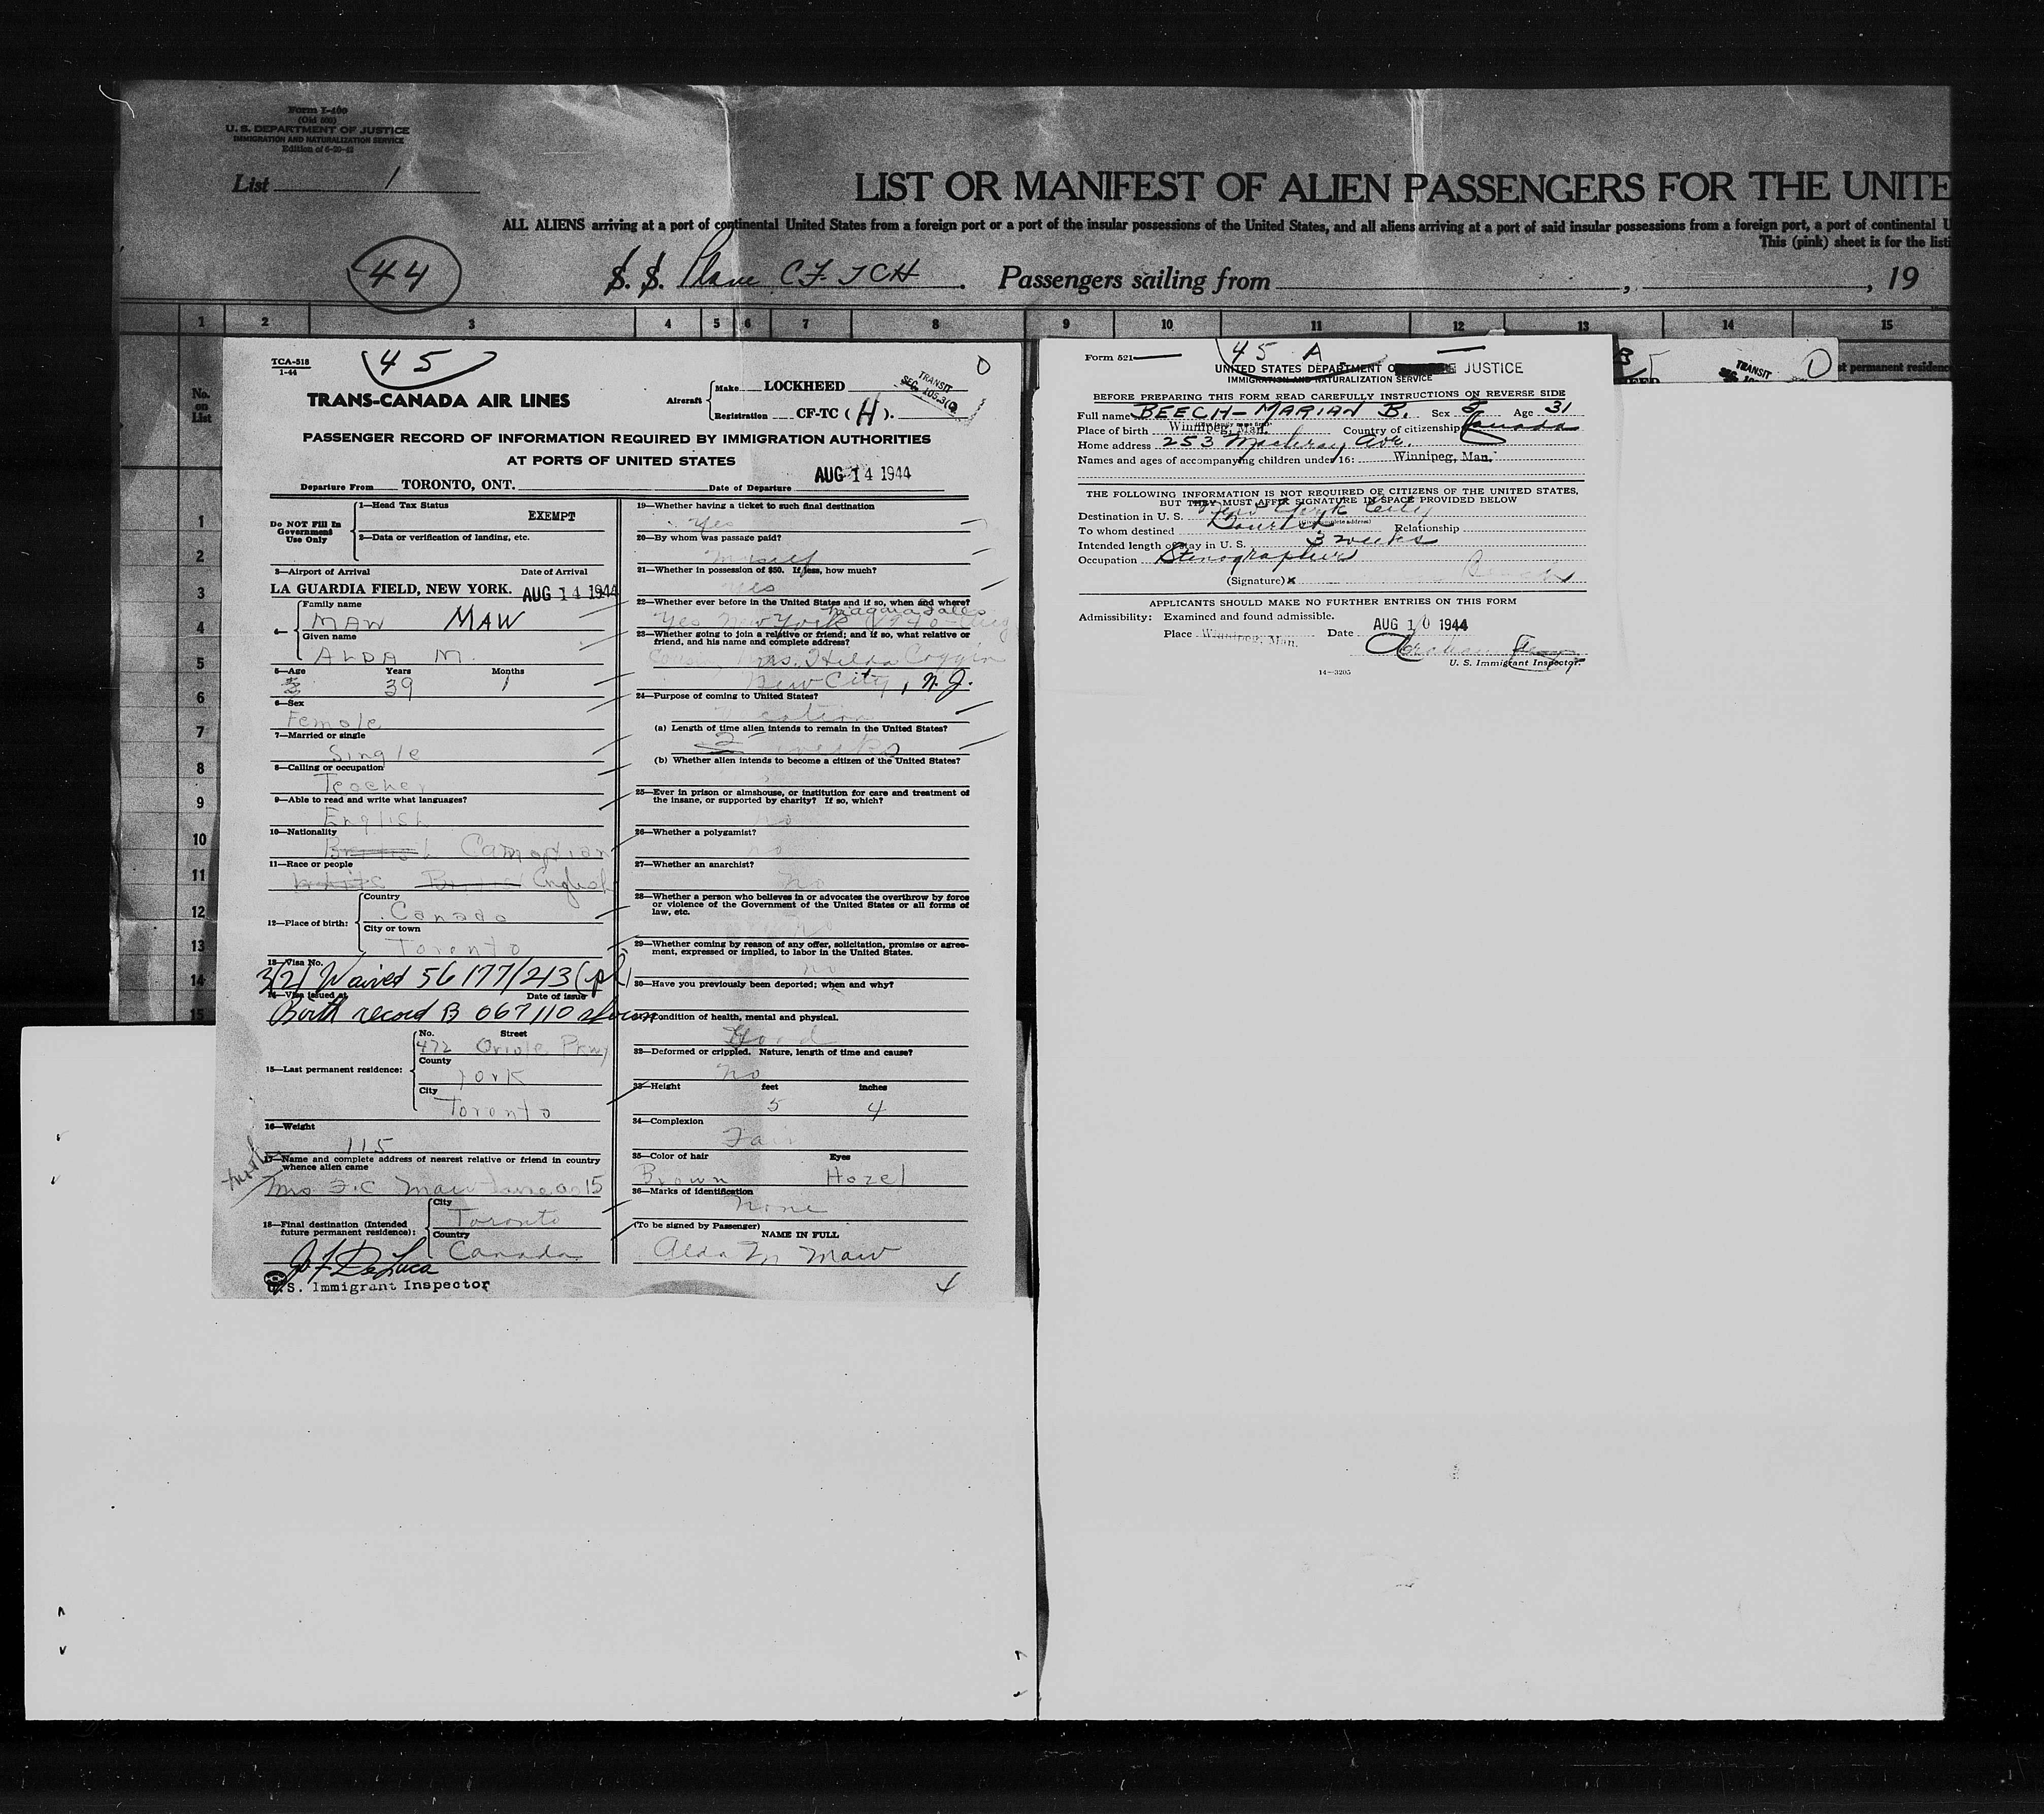 Form I-400
(Old 500)
U. S. DEPARTMENT OF JUSTICE
IMMIGRATION AND NATURALIZATION SERVICE
Edition of 6-20-42
List 1
LIST OR MANIFEST OF ALIEN PASSENGERS FOR THE UNITE
ALL ALIENS arriving at a port of continental United States from a foreign port or a port of the insular possessions of the United States, and all aliens arriving at a port of said insular possessions from a foreign port, a port of continental U
This (pink) sheet is for the listi
44
S. S. Plane CF TCH . Passengers sailing from , , 19
1 2 3 4 5 6 7 8 9 10 11 12 13 14 15
No. on List
1
2
3
4
5
6
7
8
9
10
11
12
13
14
15
TCA-518
1-44
45
TRANS-CANADA AIR LINES
Aircraft
Make LOCKHEED
Registration CF-TC ( H ).
TRANSIT
PASSENGER RECORD OF INFORMATION REQUIRED BY IMMIGRATION AUTHORITIES
AT PORTS OF UNITED STATES
Departure From TORONTO, ONT. Date of Departure AUG 14 1944
Do NOT Fill In
Government
Use Only
1—Head Tax Status
EXEMPT
2—Data or verification of landing, etc.
3—Airport of Arrival Date of Arrival
LA GUARDIA FIELD, NEW YORK. AUG 14 1944
4—
Family name
MAW MAW
Given name
ALDA M.
5—Age Years Months
39 1
6—Sex
Female
7—Married or single
Single
8—Calling or occupation
Teacher
9—Able to read and write what languages?
English
10—Nationality
British Canadian
11—Race or people
White British English
12—Place of birth:
Country
Canada
City or town
Toronto
13—Visa No.
3(2) Waived 56177/213 (pl)
14—Visa issued at Date of issue
Birth record B 067110 shown
15—Last permanent residence:
No. Street
472 Oriole Pkwy
County
York
City
Toronto
16—Weight
115
17—Name and complete address of nearest relative or friend in country
whence alien came
mother
Mrs F.C Maw same as 15
18—Final destination (Intended
future permanent residence):
City
Toronto
Country
Canada
J. F. De Luca
U.S. Immigrant Inspector
19—Whether having a ticket to such final destination
Yes
20—By whom was passage paid?
Myself
21—Whether in possession of $50. If less, how much?
Yes
22—Whether ever before in the United States and if so, when and where?
Niagara Falls
Yes New York 1940 Aug
23—Whether going to join a relative or friend; and if so, what relative or
friend, and his name and complete address?
Mrs. Hilda Coggin
New City, N.J.
24—Purpose of coming to United States?
Vacation
(a) Length of time alien intends to remain in the United States?
2 weeks
(b) Whether alien intends to become a citizen of the United States?
25—Ever in prison or almshouse, or institution for care and treatment of
the insane, or supported by charity? If so, which?
no
26—Whether a polygamist?
no
27—Whether an anarchist?
no
28—Whether a person who believes in or advocates the overthrow by force
or violence of the Government of the United States or all forms of
law, etc.
no
29—Whether coming by reason of any offer, solicitation, promise or agree-
ment, expressed or implied, to labor in the United States.
no
30—Have you previously been deported; when and why?
31—Condition of health, mental and physical.
Good
32—Deformed or crippled. Nature, length of time and cause?
no
33—Height feet inches
5 4
34—Complexion
Fair
35—Color of hair Eyes
Brown Hazel
36—Marks of identification
none
(To be signed by Passenger)
NAME IN FULL
Alda M Maw
Form 521
45 A
UNITED STATES DEPARTMENT OF JUSTICE
IMMIGRATION AND NATURALIZATION SERVICE
BEFORE PREPARING THIS FORM READ CAREFULLY INSTRUCTIONS ON REVERSE SIDE
Full name BEECH-MARIAN B. Sex F Age 31
Place of birth Winnipeg, Man. Country of citizenship Canada
Home address 253 Machray Ave.
Names and ages of accompanying children under 16: Winnipeg, Man.
THE FOLLOWING INFORMATION IS NOT REQUIRED OF CITIZENS OF THE UNITED STATES,
BUT THEY MUST AFFIX SIGNATURE IN SPACE PROVIDED BELOW
Destination in U. S. New York City
To whom destined Tourist Relationship
Intended length of stay in U. S. 3 weeks
Occupation Stenographer
(Signature) x
APPLICANTS SHOULD MAKE NO FURTHER ENTRIES ON THIS FORM
Admissibility: Examined and found admissible.
Place Winnipeg, Man. Date AUG 10 1944
U. S. Immigrant Inspector.
14—3205
TRANSIT
st permanent residenc